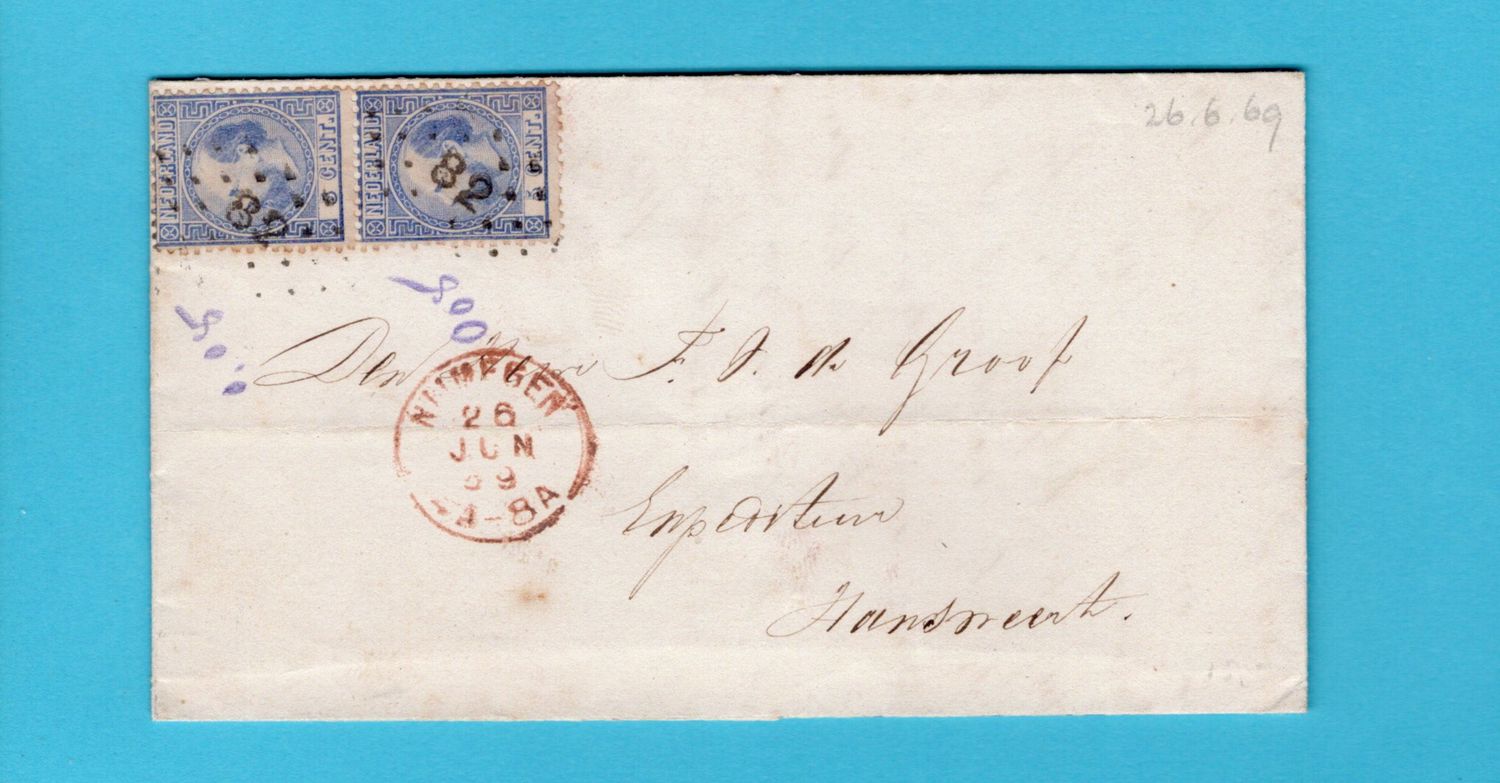 26.6.69
NEDERLAND 5 CENT.
NEDERLAND 5 CENT.
82
82
500
Den Heer F. J. de Groof
NIJMEGEN
26
JUN
69
A-8A
Expediteur
Hansweert.